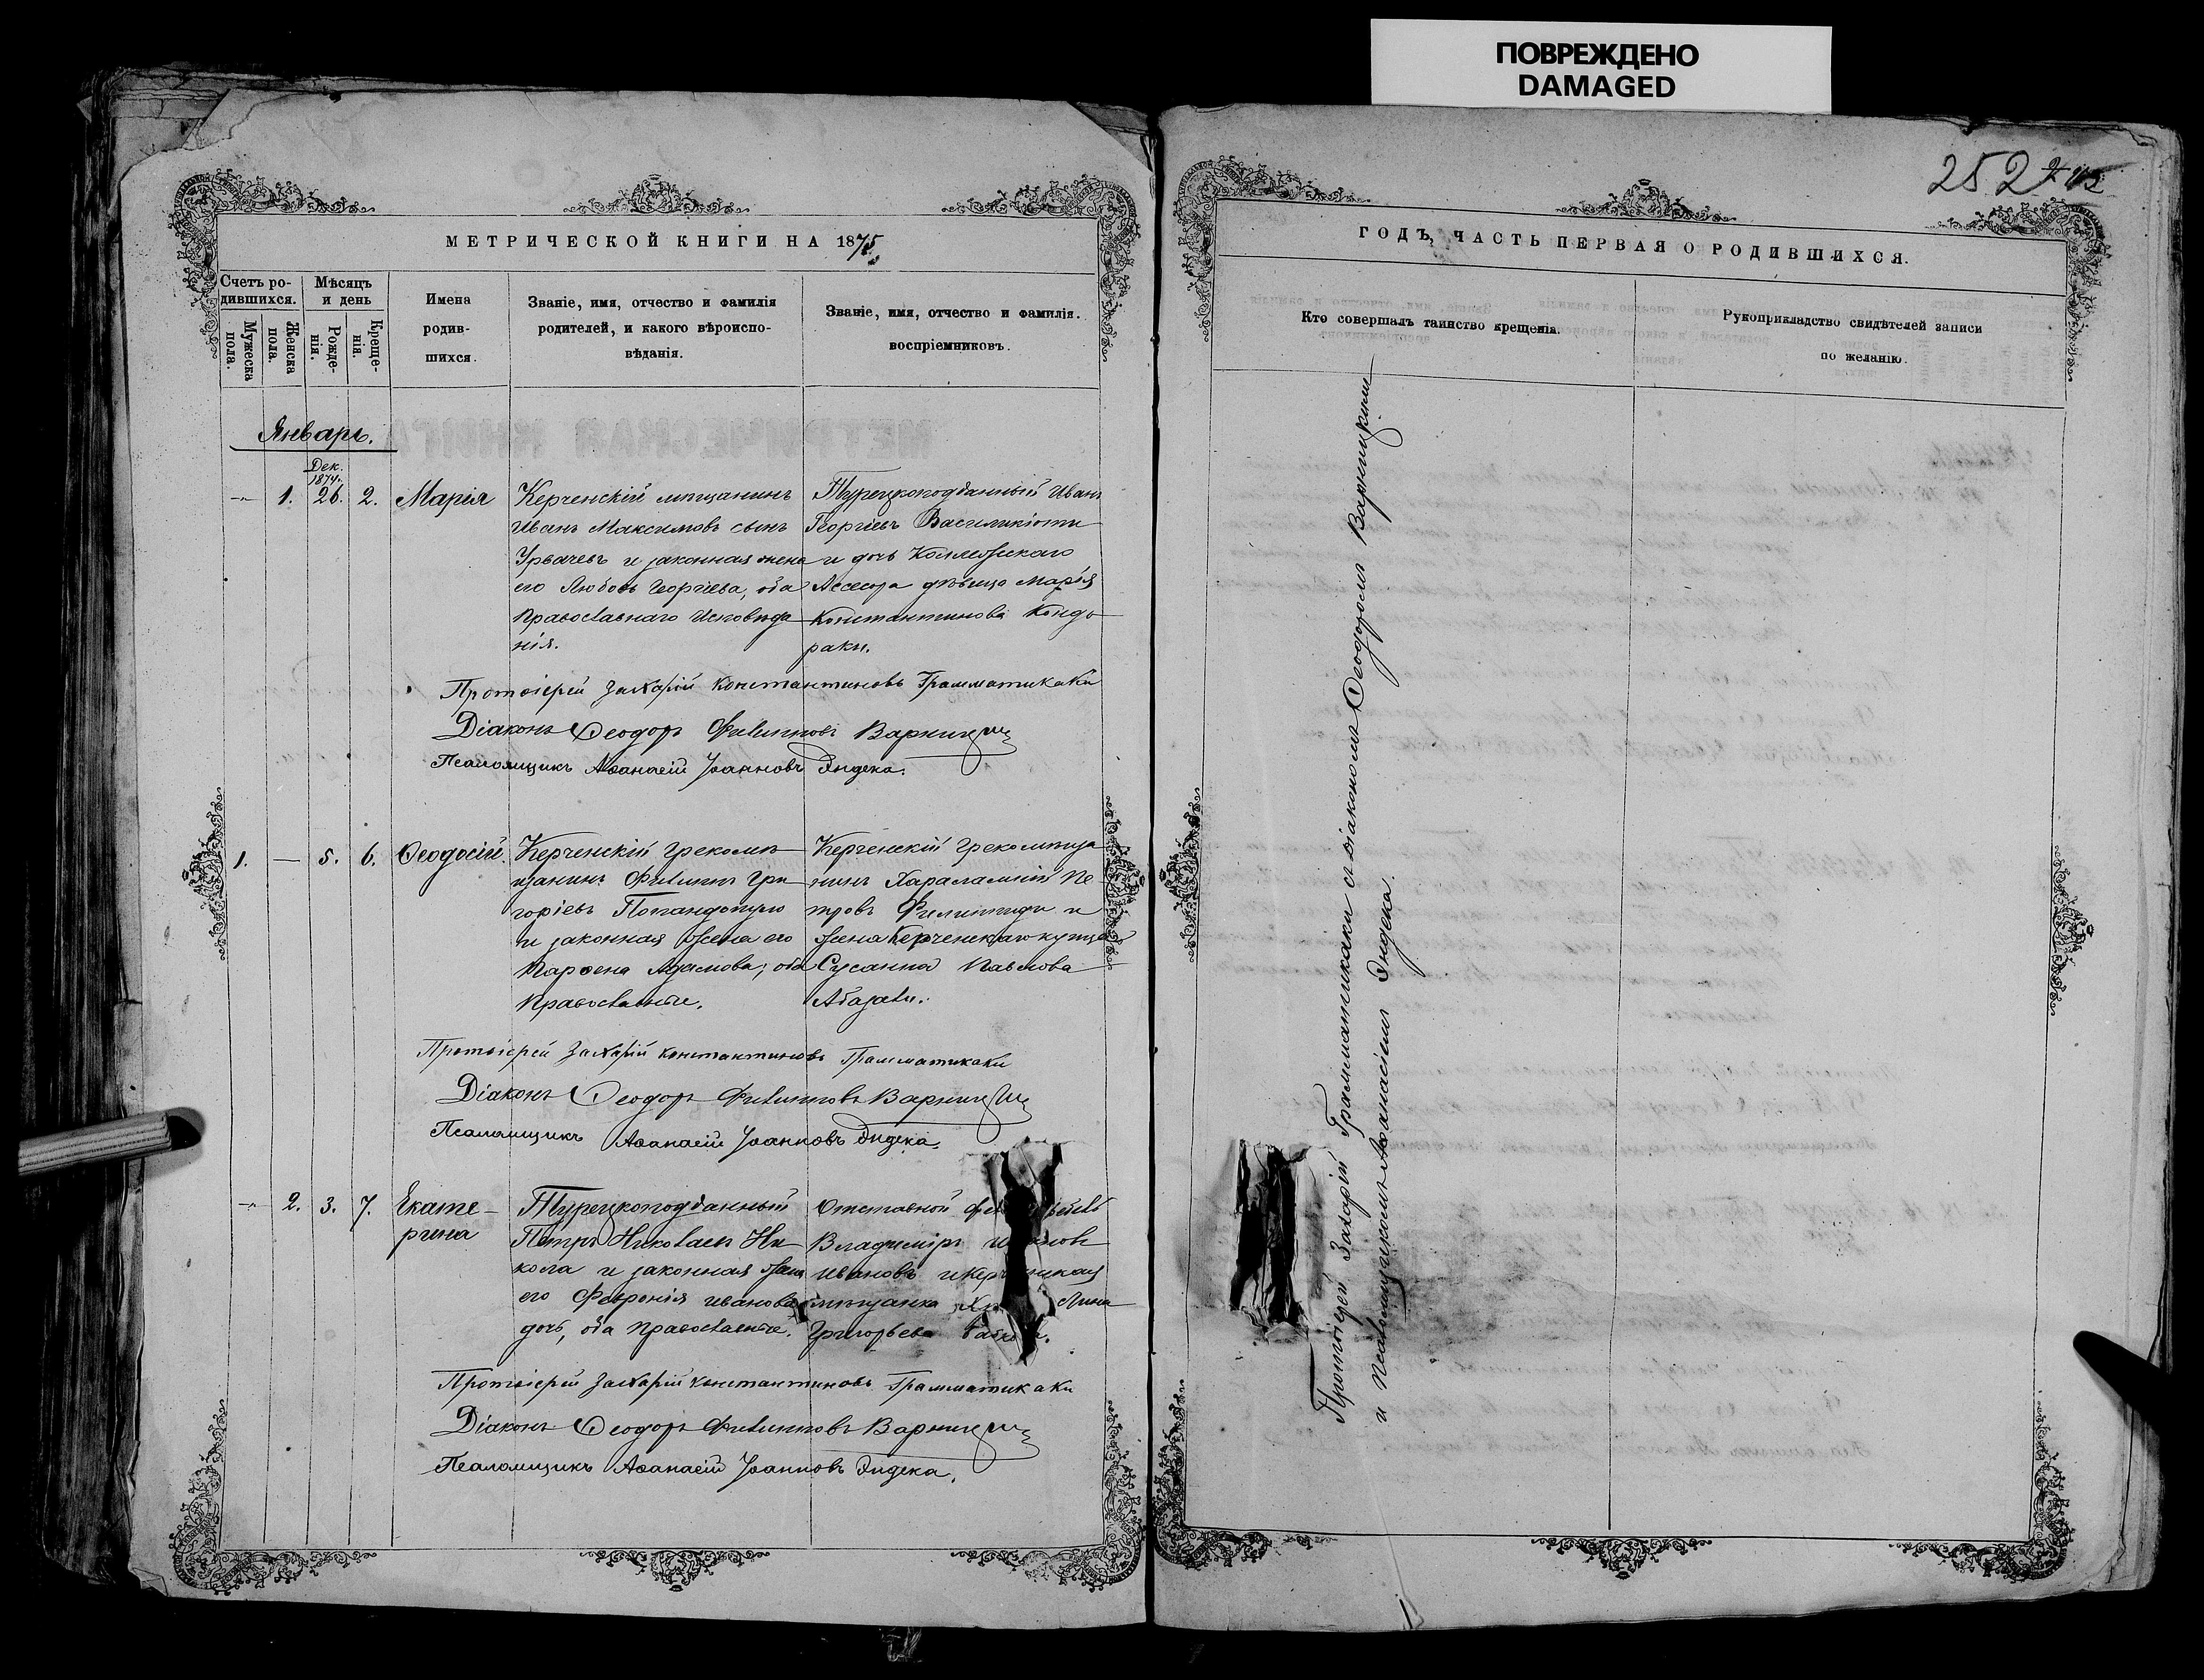 ПОВРЕЖДЕНО
DAMAGED
252
МЕТРИЧЕСКОЙ КНИГИ НА 1875
Счетъ родившихся.
Мужеска пола.
Женска пола.
Мѣсяцъ и день
Рожденія.
Крещенія.
Имена
родив-
шихся.
Званіе, имя, отчество и фамилія
родителей, и какого вѣроиспо-
вѣданія.
Званіе, имя, отчество и фамилія
воспріемниковъ.
Январь.
Дек.
1874 г.
-"- 1. 26. 2. Марія
Керченскій мѣщанинъ
Иванъ Максимовъ сынъ
и законная жена
его Любовь Георгіева, оба
Православнаго Исповѣда
нія.
Турецкоподданный Иванъ
Георгіевъ
и дочь Коллежскаго
Асессора дѣвица Марія
Константинова Кондо
раки.
Протоіерей Захарій Константиновъ Грамматикаки
Діаконъ Ѳеодоръ Филипповъ Варницкій
Псаломщикъ Аѳанасій Іоанновъ Эндека.
1. — 5. 6. Ѳеодосій.
Керченскій грекомѣ
щанинъ Филиппъ Гри
горіевъ Попандопуло
и законная жена его
Парѳена Адамова; оба
Православные.
Керченскій грекомѣща
нинъ Харалампій Пе
тровъ Филиппиди и
жена Керченскаго купца
Сусанна Павлова
Абазали.
Протоіерей Захарій Константиновъ Грамматикаки
Діаконъ Ѳеодоръ Филипповъ Варницкій
Псаломщикъ Аѳанасій Іоанновъ Эндека.
-"- 2. 3. 7. Екате-
рина
Турецкоподданный
Петръ Николаевъ Ни
кола и законная жена
его Февронія Иванова
дочь, оба Православные.
Отставной
Владиміръ
Ивановъ и
мѣщанка
Григорьева
Протоіерей Захарій Константиновъ Грамматикаки
Діаконъ Ѳеодоръ Филипповъ Варницкій
Псаломщикъ Аѳанасій Іоанновъ Эндека.
ГОДЪ, ЧАСТЬ ПЕРВАЯ О РОДИВШИХСЯ.
Кто совершалъ таинство крещенія.
Рукоприкладство свидѣтелей записи
по желанію.
Протоіерей Захарій Грамматикаки съ діакономъ Ѳеодоромъ Варницкимъ
и Псаломщикомъ Аѳанасіемъ Эндека.